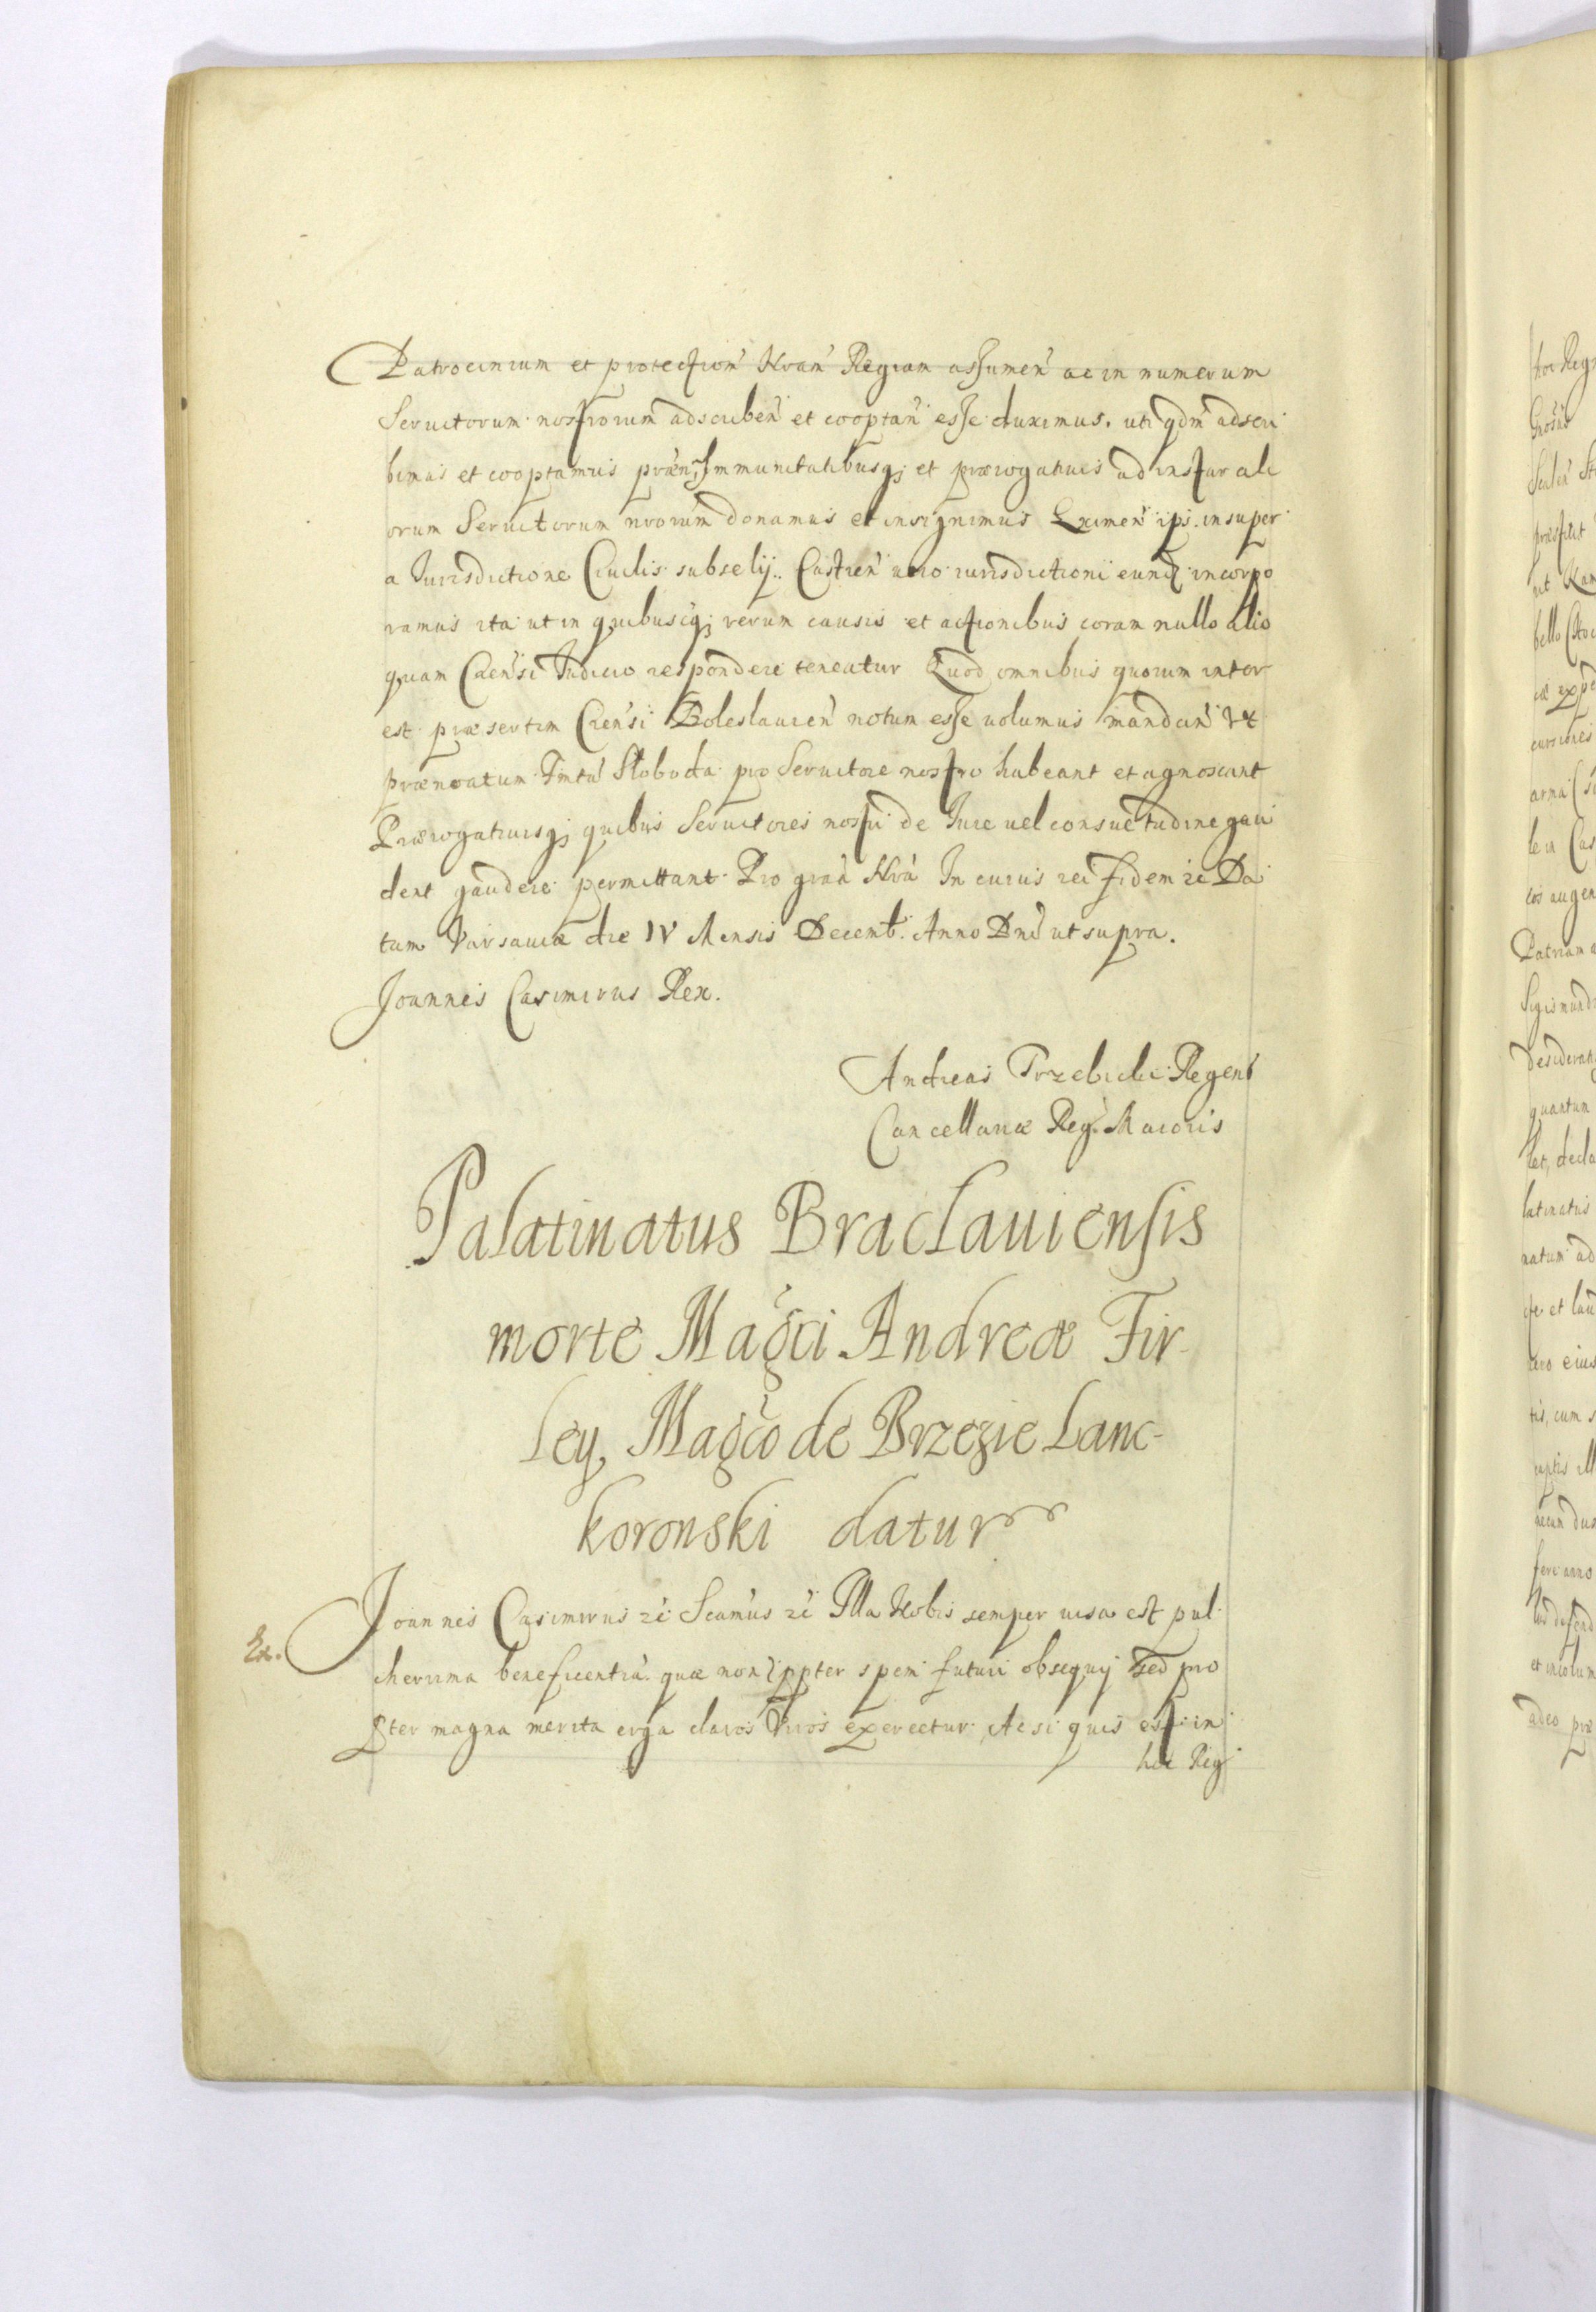 Patrocinium et protection Nram Regiam assumen ac in numerum
Seruitorum nostrorum adscriben et cooptan esse duximus. uti qdm adscri
bimus et cooptamus præn Immunitatibusq; et prærogatiuis ad instar ali
orum Seruitorum nrorum donamus et insignimus Eximen ipi. insuper
a Iurisdictione Ciuilis subselij. Castren uero iurisdictioni eund incorpo
ramus ita ut in quibuscq; rerum causis et actionibus coram nullo alio
quam Crensi Iudicio respondere teneatur Quod omnibus quorum inter
est præsertim Crensi Boleslauien notum esse uolumus mandan ut
prænoatum Sloboda pro Seruitore nostro habeant et agnoscant
Prærogatiuisq; quibus Seruitores nostri de Iure uel consuetudine gau
dent gaudere permittant Pro gra Nra In cuius rei fidem zc Da
tum Varsauiæ die IV Mensis Decemb. Anno Dni ut supra.
Joannes Casimirus Rex.
Andreas Trzebicki Regens
Cancellariæ Reg. Maioris
Palatinatus Braclauiensis
morte Magci Andreæ Fir-
ley, Magco de Brzezie Lanc-
koronski datur
Ex.
Joannes Casimirus zc Scamus zc Illa Nobis semper uisa est pul
cherrima beneficentia quæ non ppter spem futuri obsequij sed pro
pter magna merita erga claros Viros exercetur, Ac si quis est in
hoc Reg